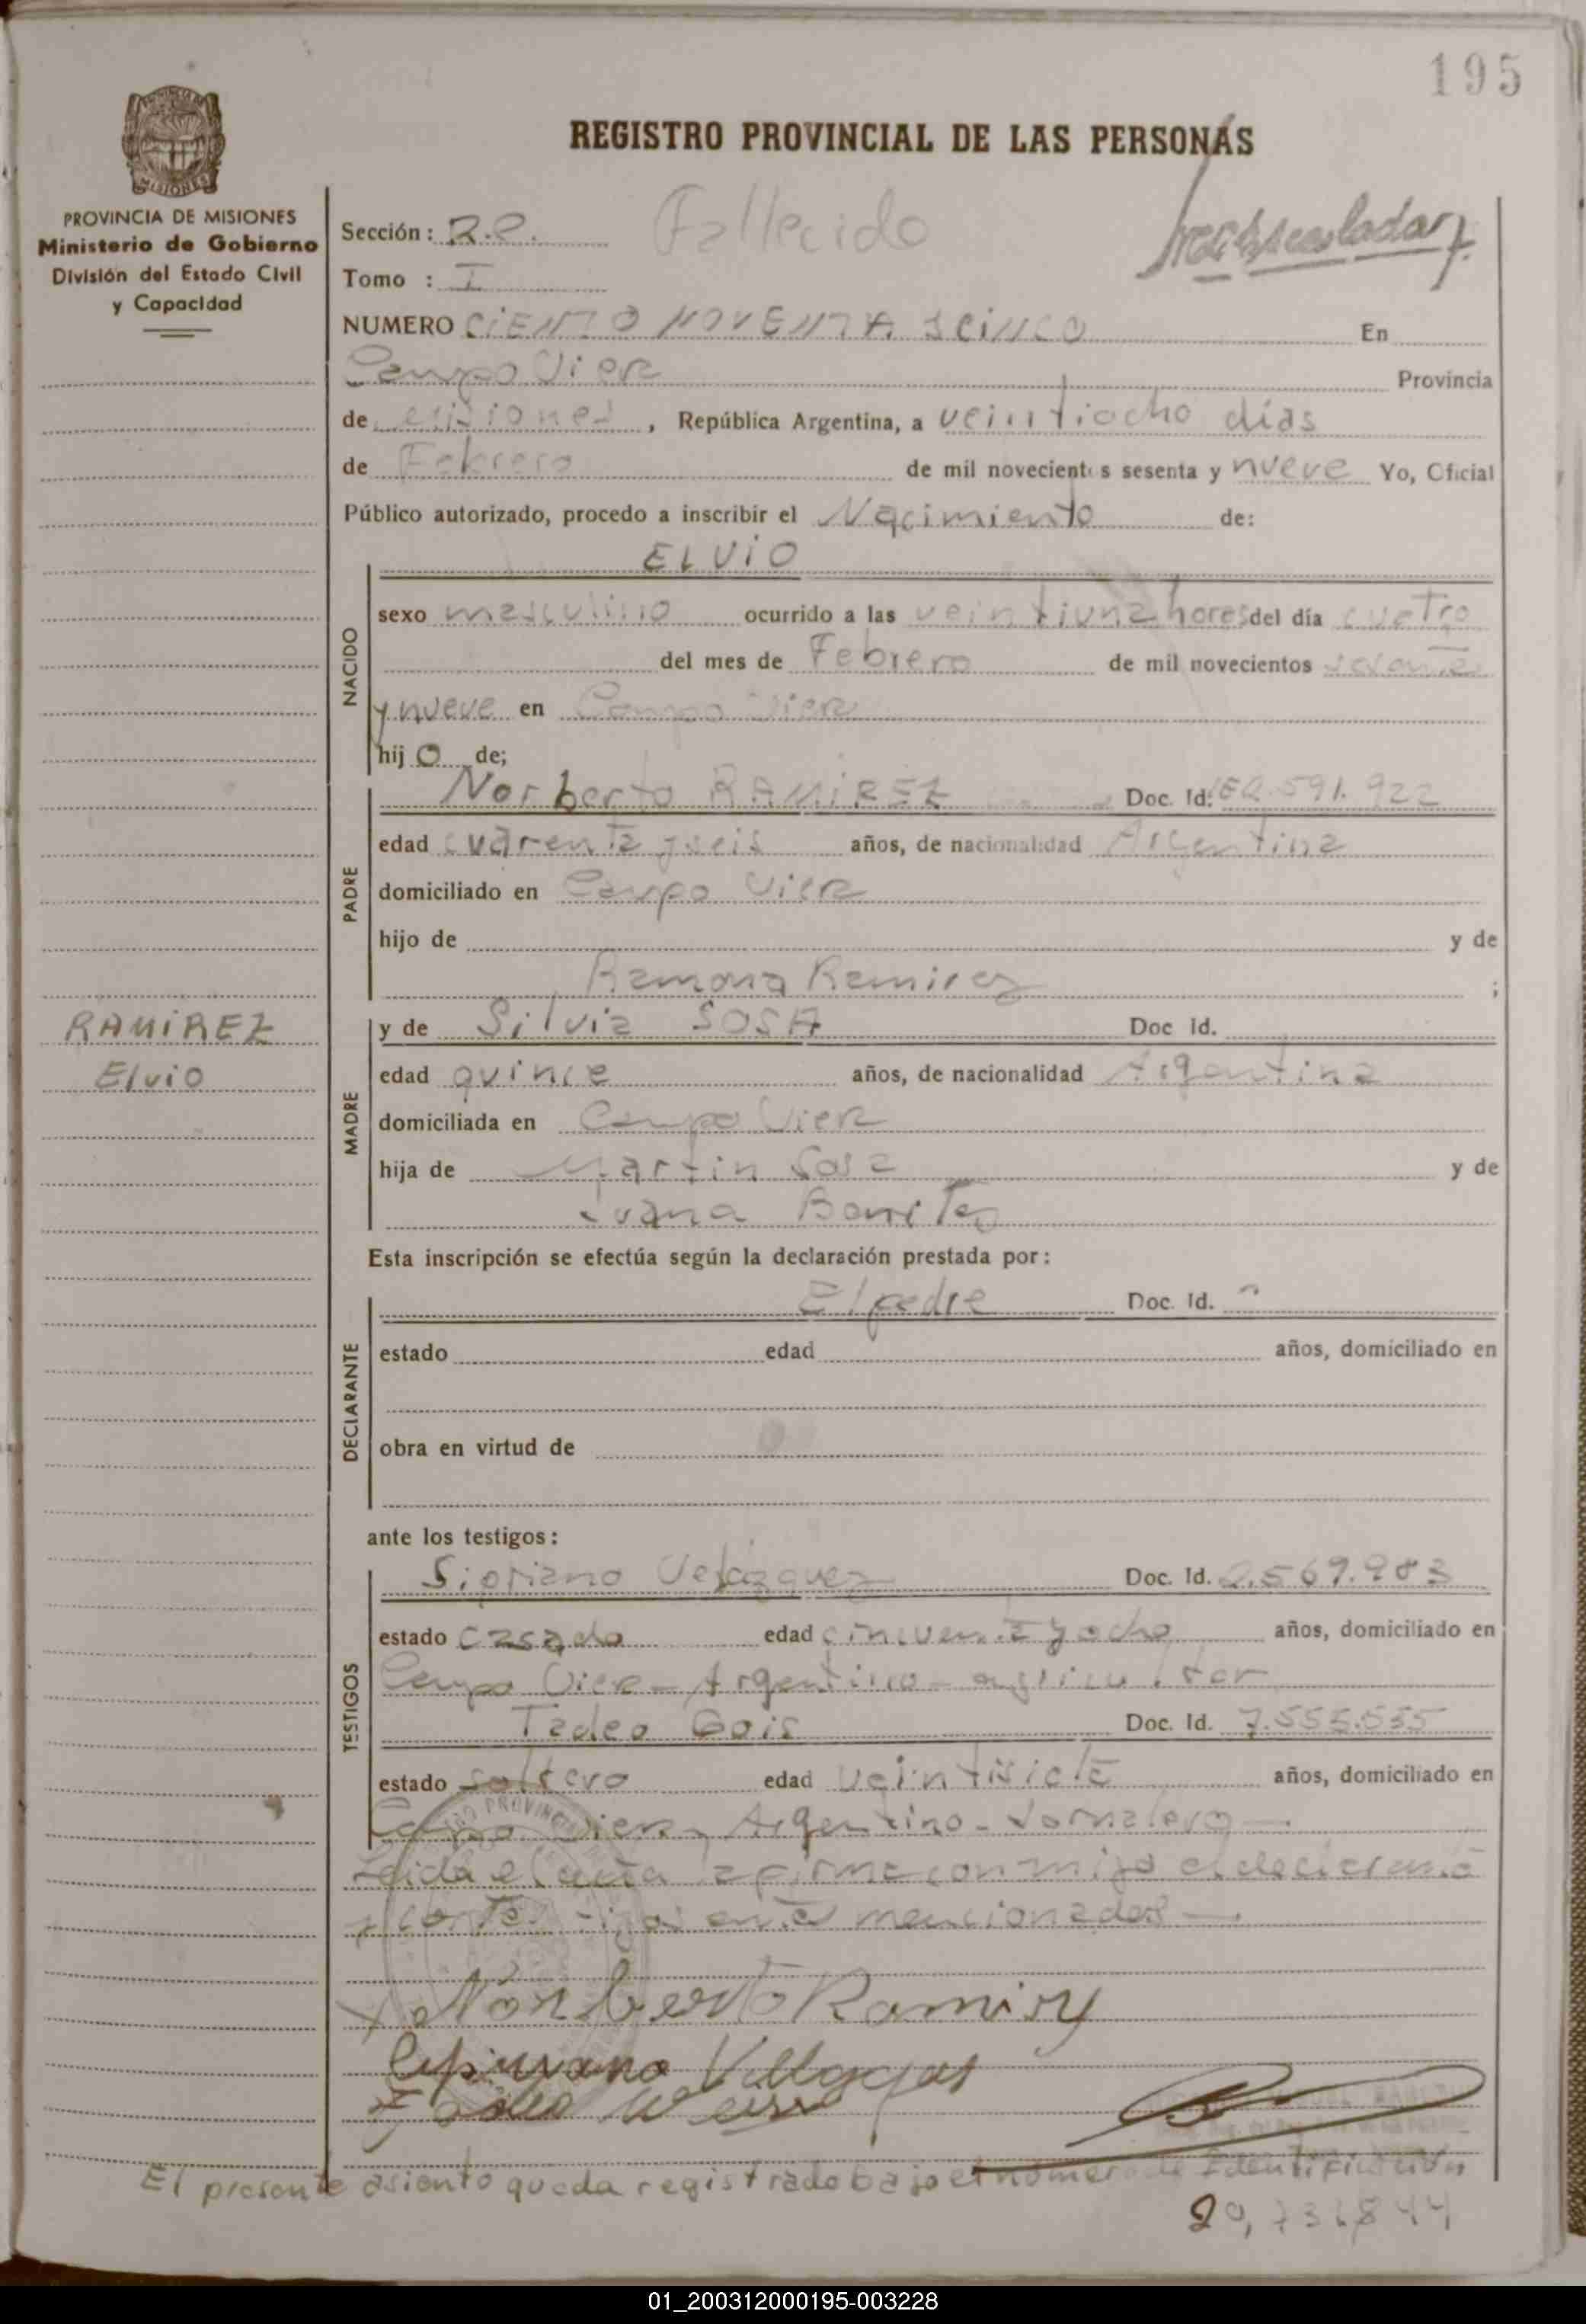 195
REGISTRO PROVINCIAL DE LAS PERSONAS
PROVINCIA DE MISIONES
Ministerio de Gobierno
División del Estado Civil
y Capacidad
Sección: Fallecido
Tomo : I
NUMERO CIENTO NOVENTA y CiNCO En
Campo Viera Provincia
de Misiones, República Argentina, a veintiocho días
de Febrero de mil novecientos sesenta y nueve Yo, Oficial
Público autorizado, procedo a inscribir el Nacimiento de:
ELViO
NACIDO
sexo masculino ocurrido a las veintiuna horas del día cuatro
del mes de Febrero de mil novecientos sesenta
y nueve en Campo Viera
hijo de;
PADRE
Norberto RAMiREZ Doc. Id: 591.922
edad cuarenta y seis años, de nacionalidad Argentina
domiciliado en Campo Viera
hijo de y de
Ramona Ramirez ;
RAMiREZ
Elvio
MADRE
y de Silvia SOSA Doc Id.
edad quince años, de nacionalidad Argentina
domiciliada en Campo Viera
hija de Martin Sosa y de
Juana Benitez
Esta inscripción se efectúa según la declaración prestada por:
DECLARANTE
El padre Doc. Id.
estado edad años, domiciliado en
obra en virtud de
ante los testigos:
TESTIGOS
Sipriano Velázquez Doc. Id. 2.569.983
estado casado edad cincuenta y ocho años, domiciliado en
Campo Viera - Argentino - agricultor
Tadeo Gois Doc. Id. 7.555.535
estado soltero edad veintisiete años, domiciliado en
Campo Viera - Argentino - Jornalero
Leida el acta la firma conmigo el declarante
y los testigos ante mencionados
Norberto Ramirez
El presente asiento queda registrado bajo el número de Identificación
01_200312000195-003228